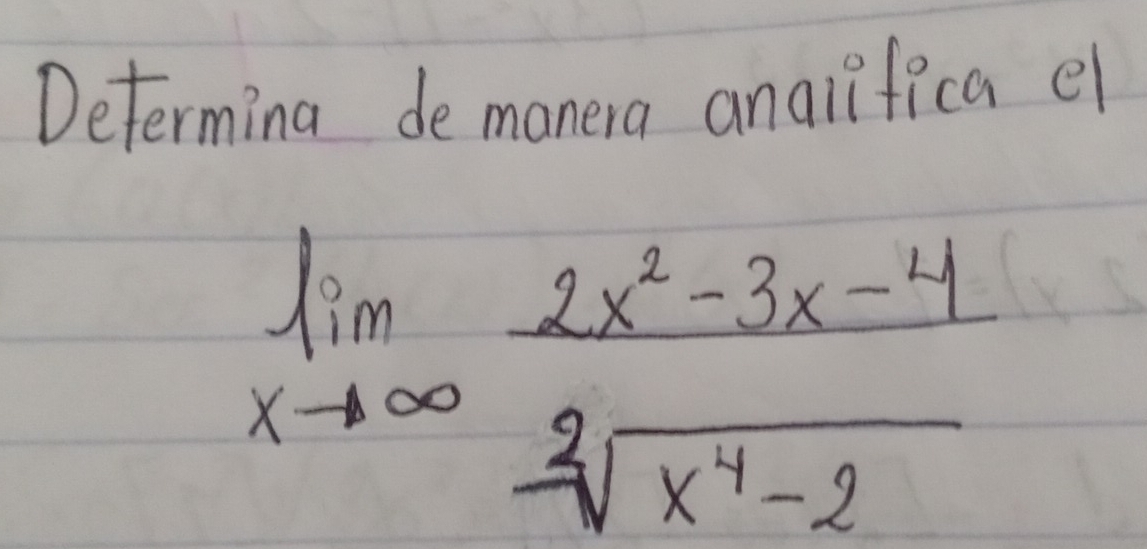 Determina de manera analitica el
lim 2x² - 3x - 4
x→∞ ²√x⁴ - 2